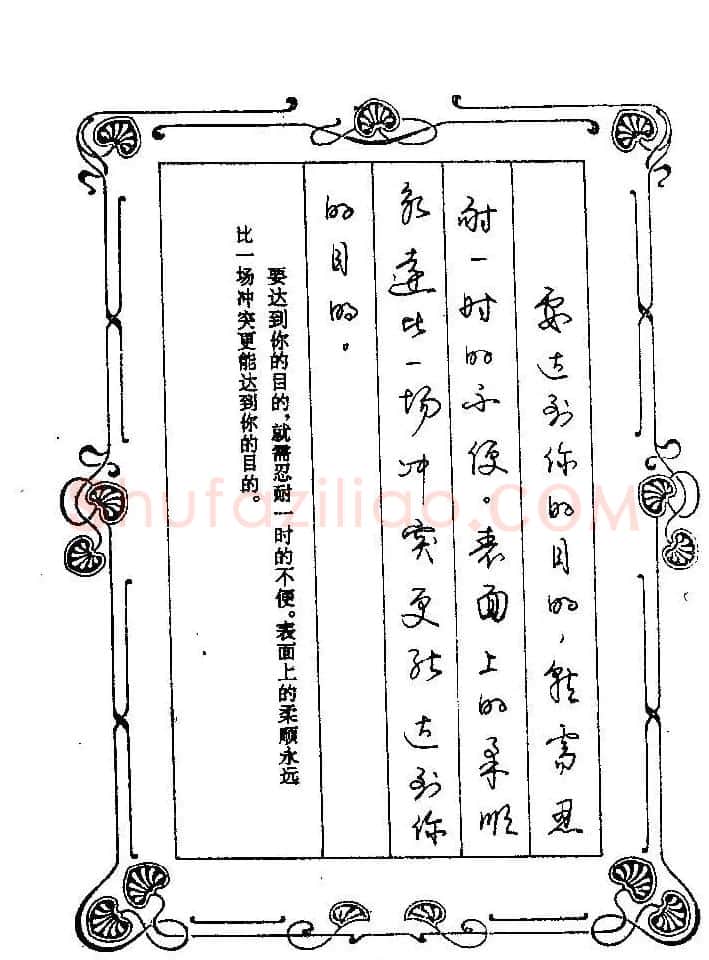 要达到你的目的，就需忍
耐一时的不便。表面上的柔顺
永远比一场冲突更能达到你
的目的。
要达到你的目的，就需忍耐一时的不便。表面上的柔顺永远
比一场冲突更能达到你的目的。
shufaziliao.COM